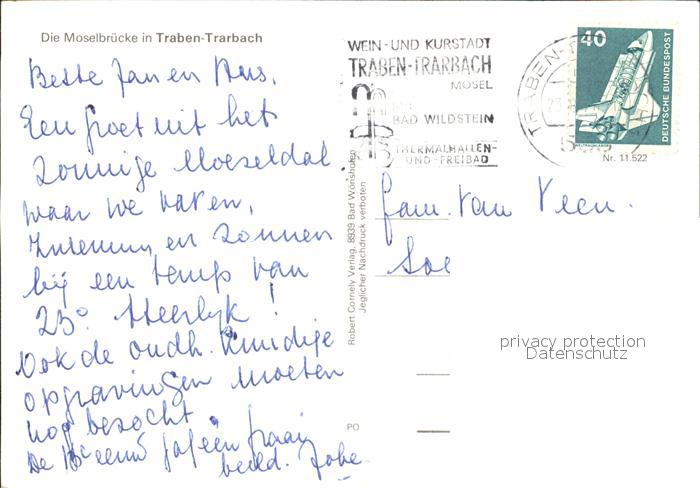 Die Moselbrücke in Traben-Trarbach
Beste Jan en Ans,
Een groet uit het
zonnige Moeseldal
waar we varen,
zwemmen, en zonnen
bij een temp van
25° Heerlijk!
Ook de oudh. kundige
opgravingen moeten
nog bezocht.
De 18e eeuw
beeld.
Robert Cornely Verlag, 8939 Bad Wörishofen
Jeglicher Nachdruck verboten
WEIN-UND KURSTADT
TRABEN-TRARBACH
MOSEL
BAD WILDSTEIN
THERMALHALLEN-
UND-FREIBAD
TRABEN-
40
DEUTSCHE BUNDESPOST
WELTRAUMLABOR
Nr. 11.522
fam. van Veen.
Soe
privacy protection
Datenschutz
PO